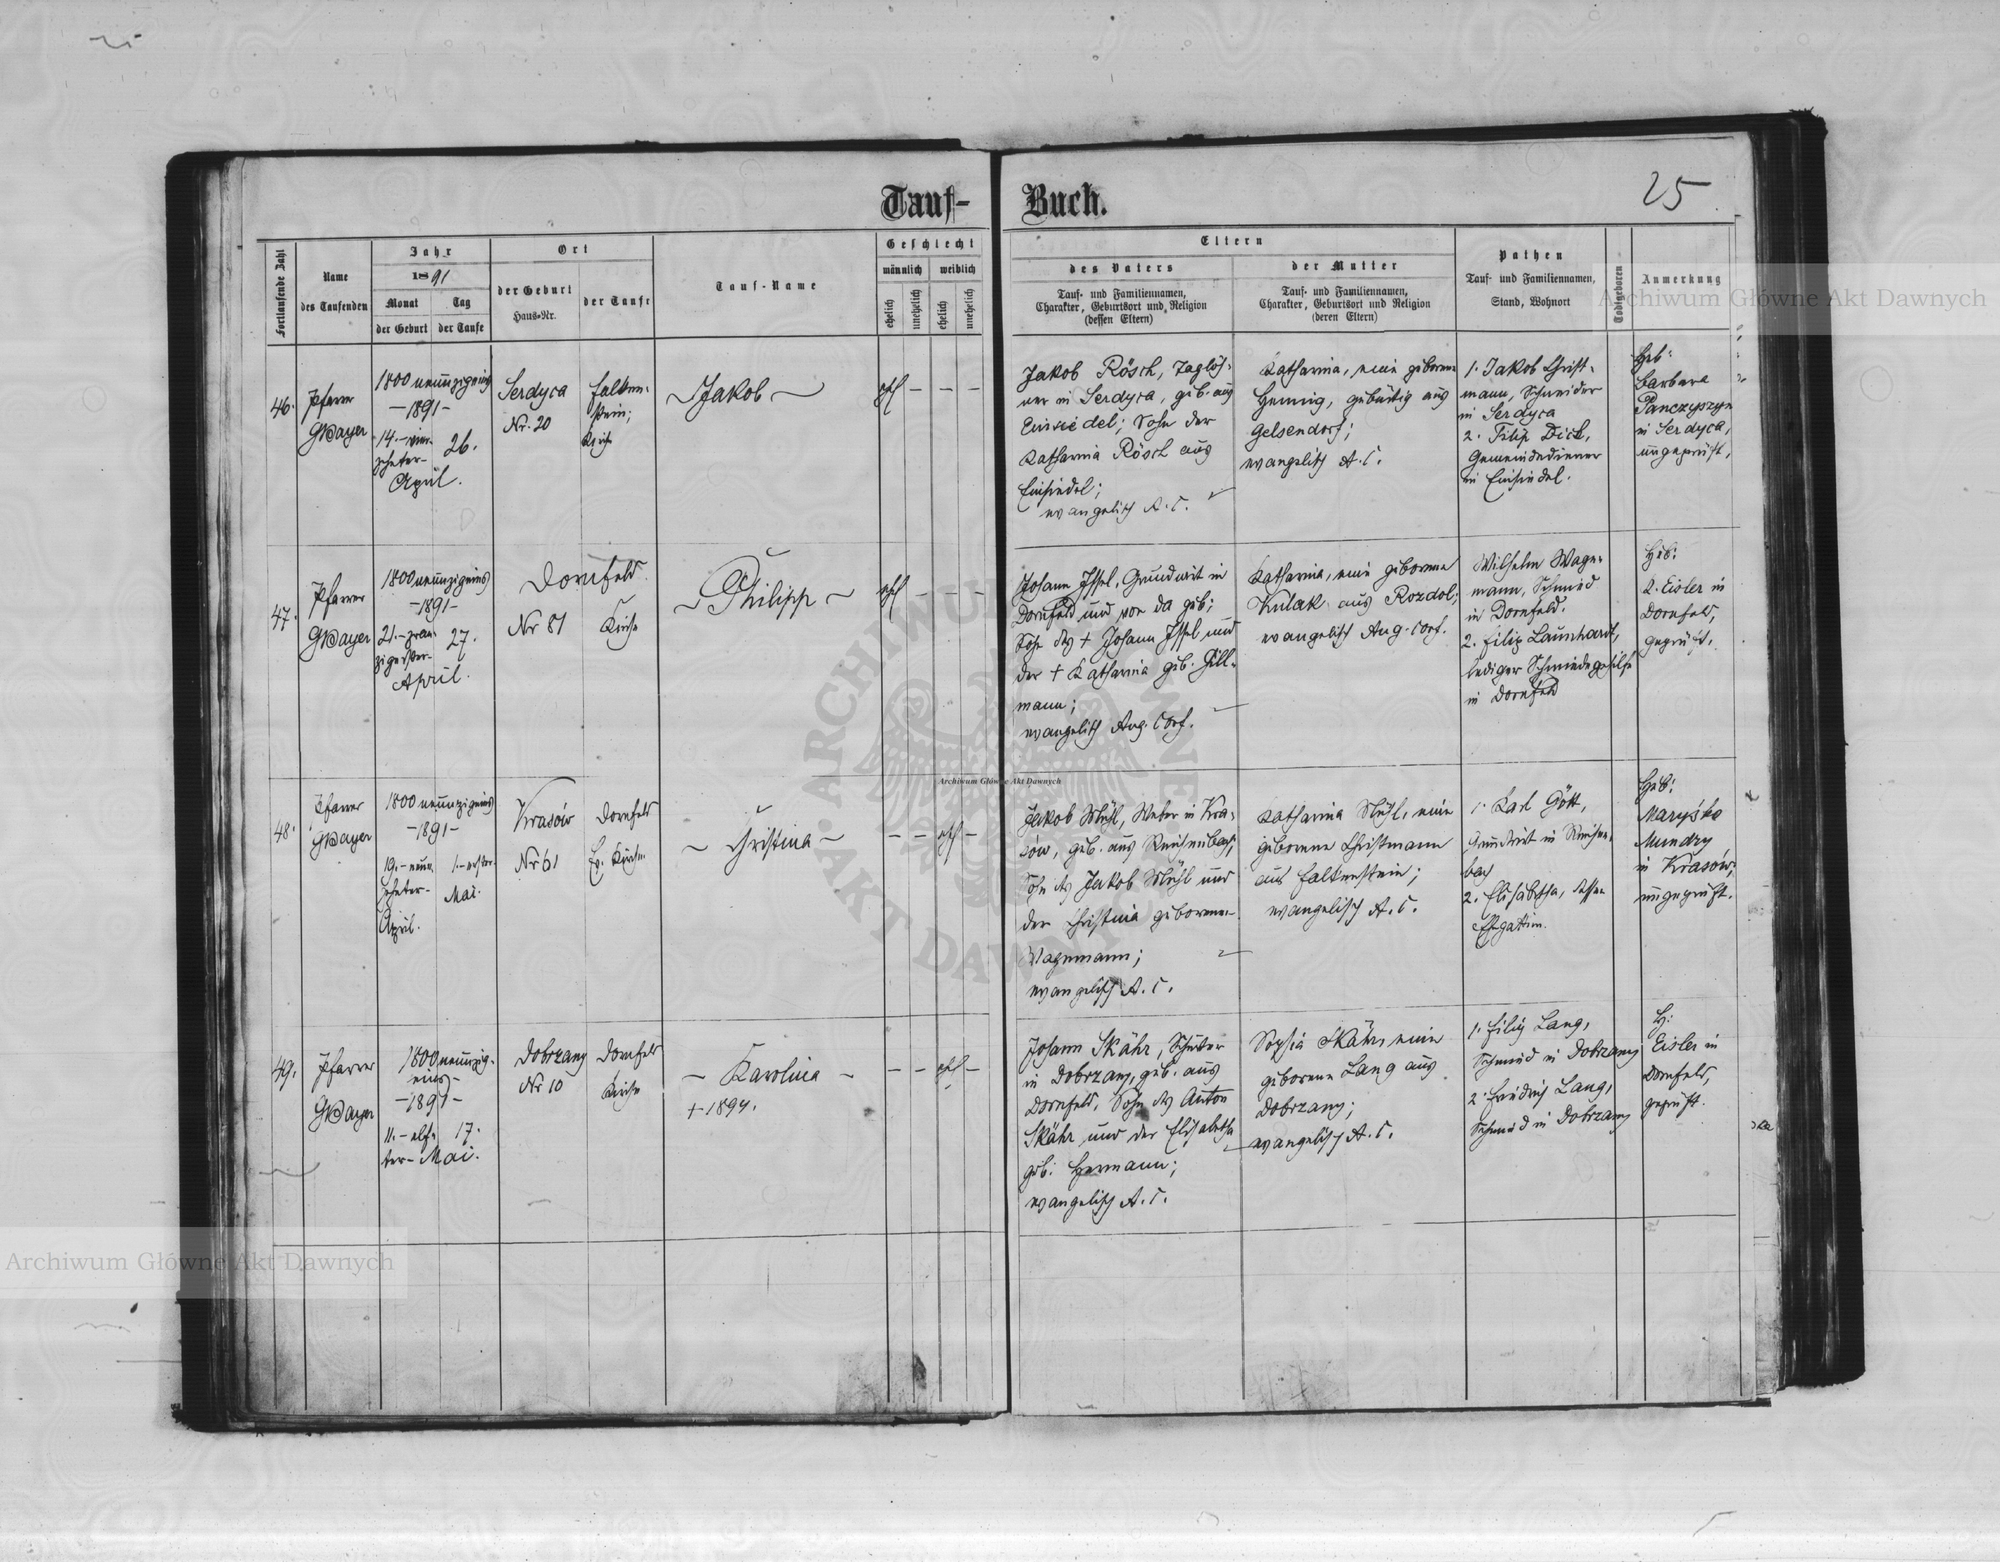 Tauf-
Buch.
25
Fortlaufende Zahl
Name
des Taufenden
Jahr
1891
Monat
der Geburt
Tag
der Taufe
Ort
der Geburt
Haus-Nr.
der Taufe
Tauf-Name
Geschlecht
männlich
weiblich
ehelich
unehelich
ehelich
unehelich
Eltern
des Vaters
Tauf- und Familiennamen,
Charakter, Geburtsort und Religion
(dessen Eltern)
der Mutter
Tauf- und Familiennamen,
Charakter, Geburtsort und Religion
(deren Eltern)
Pathen
Tauf- und Familiennamen,
Stand, Wohnort
Todtgeboren
Anmerkung
46.
Pfarrer
GBayer
1800 neunzigeins
-1891-
14.-vier-
zehnter-
April.
26.
Serdyca
Nr. 20
Falken-
stein;
Kirche
Jakob
ehel - - -
Jakob Rösch, Taglöh-
ner in Serdyca, geb. aus
Einsiedel; Sohn der
Katharina Rösch aus
Einsiedel;
evangelisch A. C.
Katharina, eine geborene
Hennig, gebürtig aus
Gelsendorf;
evangelisch A. C.
1. Jakob Christ-
mann, Schneider
in Serdyca
2. Filip Dick,
Gemeindediener
in Einsiedel.
Heb:
Barbara
Panczyszyn
in Serdyca,
ungeprüft.
47.
Pfarrer
GBayer
1800 neunzigeins
-1891-
21.-zwan-
zigerster-
April.
27.
Dornfeld
Nr 81
Kirche
Philipp
ehel - - -
Johann Issel, Grundwirt in
Dornfeld und von da geb;
Sohn des + Johann Issel und
der + Katharina geb. Gill-
mann;
evangelisch Aug. Conf.
Katharina, eine geborene
Kulak aus Rozdol;
evangelisch Aug. Conf.
Wilhelm Wage-
mann, Schmied
in Dornfeld.
2. Filip Launhardt,
lediger Schmiedegehilfe
in Dornfeld
Heb:
Eisler in
Dornfeld,
geprüft.
48.
Pfarrer
GBayer
1800 neunzigeins
-1891-
19.-neun-
zehnter-
April.
1.-erster-
Mai.
Krasów
Nr 61
Dornfeld
Ev. Kirche
Christina
- - ehel -
Jakob Mühl, Weber in Kra-
sów, geb. aus Reichenbach,
Sohn des Jakob Mühl und
der Christina geborenen
Wagemann;
evangelisch A. C.
Katharina Mühl, eine
geborene Christmann
aus Falkenstein;
evangelisch A. C.
1. Karl Gött,
Grundwirt in Reichen-
bach
2. Elisabetha, dessen
Ehegattin.
Heb:
Maryśka
Mundry
in Krasów;
ungeprüft.
49.
Pfarrer
GBayer
1800 neunzig-
eins-
-1891-
11.-elf-
ter-
Mai.
17.
Dobrzany
Nr 10
Dornfeld
Kirche
Karolina
+ 1894.
- - ehel -
Johann Skähr, Schuster
in Dobrzany, geb. aus
Dornfeld, Sohn des Anton
Skähr und der Elisabetha
geb. Hermann;
evangelisch A. C.
Sophia Skähr, eine
geborene Lang aus
Dobrzany;
evangelisch A. C.
1. Filip Lang,
Schmied in Dobrzany
2. Friedrich Lang,
Schmied in Dobrzany
H:
Eisler in
Dornfeld,
geprüft.
Archiwum Główne Akt Dawnych
Archiwum Główne Akt Dawnych
Archiwum Główne Akt Dawnych